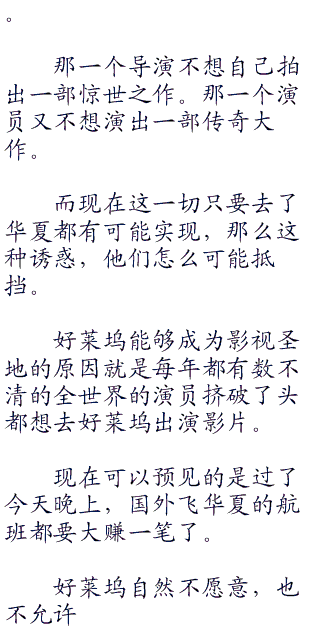 。
那一个导演不想自己拍
出一部惊世之作。那一个演
员又不想演出一部传奇大
作。
而现在这一切只要去了
华夏都有可能实现，那么这
种诱惑，他们怎么可能抵
挡。
好菜坞能够成为影视圣
地的原因就是每年都有数不
清的全世界的演员挤破了头
都想去好菜坞出演影片。
现在可以预见的是过了
今天晚上，国外飞华夏的航
班都要大赚一笔了。
好菜坞自然不愿意，也
不允许